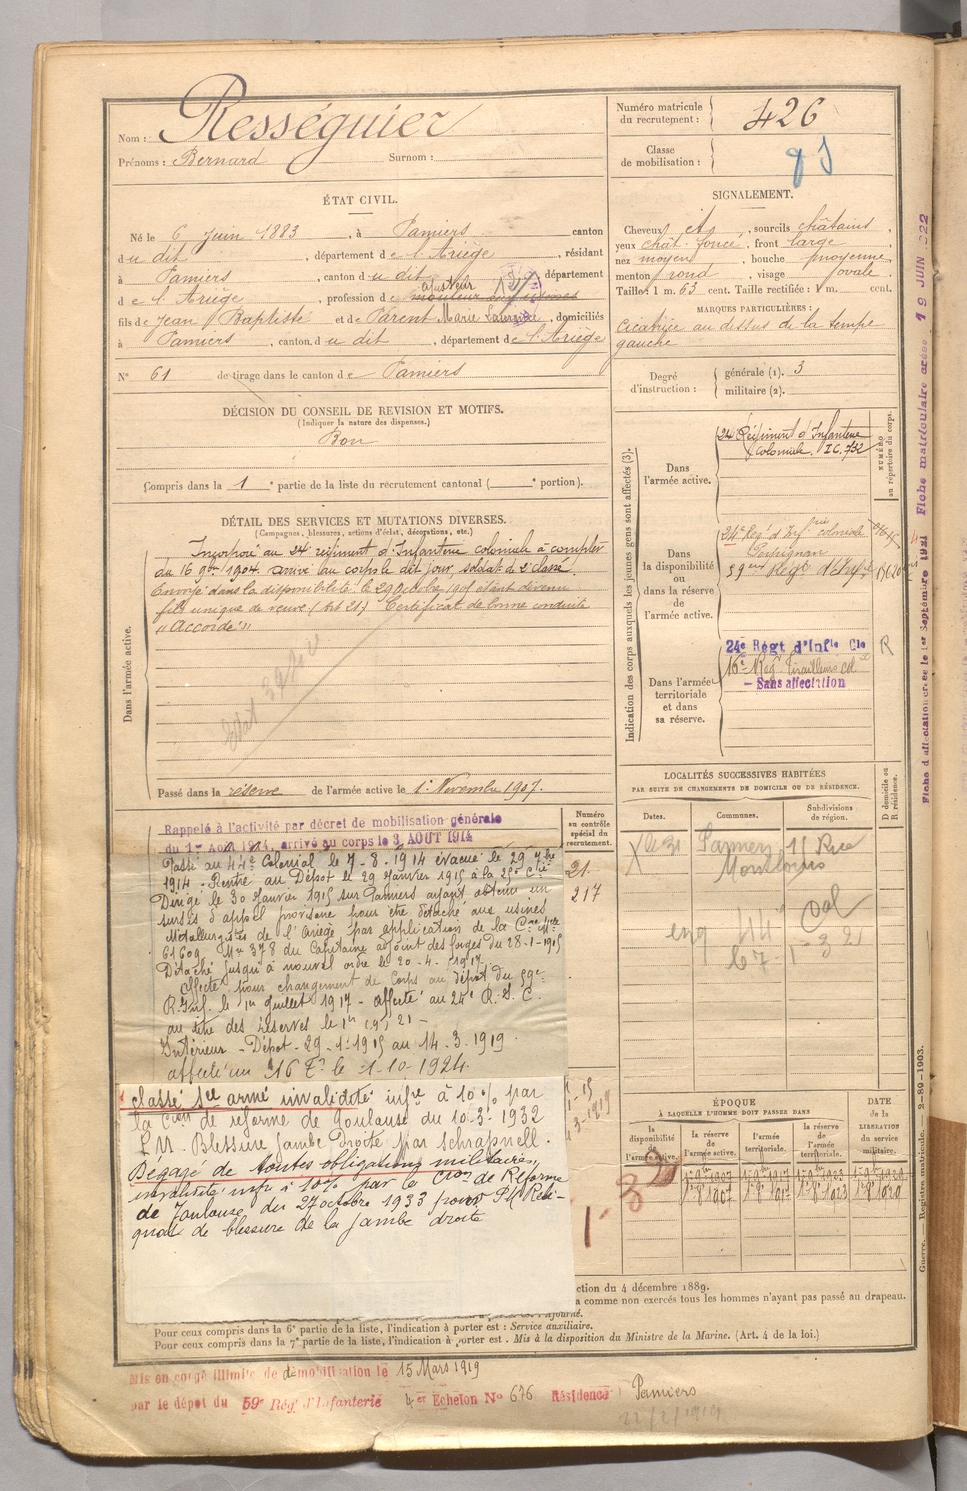 Nom : Rességuier
Prénoms : Bernard Surnom :
Numéro matricule du recrutement : 426
Classe de mobilisation :
ÉTAT CIVIL.
Né le 6 Juin 1883, à Pamiers canton
du dit, département de l'Ariège résidant
à Pamiers, canton du dit département
de l'Ariège, profession de ajusteur
fils de Jean Baptiste et de Parent Marie, domiciliés
à Pamiers, canton du dit, département de l'Ariège
No 61 de tirage dans le canton de Pamiers
SIGNALEMENT.
Cheveux et, sourcils châtains
yeux chat. foncé, front large
nez moyen, bouche moyenne
menton rond, visage ovale.
Taille : 1 m. 63 cent. Taille rectifiée : 1 m. cent.
MARQUES PARTICULIÈRES :
Cicatrice au dessus de la tempe
gauche
Degré d'instruction : générale (1). 3
militaire (2).
DÉCISION DU CONSEIL DE REVISION ET MOTIFS.
(Indiquer la nature des dispenses.)
Bon
Compris dans la 1e partie de la liste du recrutement cantonal ( e portion).
DÉTAIL DES SERVICES ET MUTATIONS DIVERSES.
(Campagnes, blessures, actions d'éclat, décorations, etc.)
Dans l'armée active.
Incorporé au 24e régiment d'Infanterie coloniale à compter
du 16 9bre 1904. arrivé au corps le dit jour, soldat de 2e classe.
Envoyé dans la disponibilité le 29 Octobre 1905 étant devenu
fils unique de veuve (art 21) Certificat de bonne conduite
"Accordé"
Passé dans la réserve de l'armée active le 1er Novembre 1907.
Indication des corps auxquels les jeunes gens sont affectés (3).
NUMÉRO au répertoire du corps.
Dans l'armée active.
24 Régiment d'Infanterie
Coloniale. IC. 732
Dans la disponibilité ou dans la réserve de l'armée active.
24e Reg't d'Infrie coloniale
Perpignan
59eme Regt d'Infie
Dans l'armée territoriale et dans sa réserve.
24e Régt d'Infie Cle R
16e Reg Tirailleurs col
– Sans affectation
LOCALITÉS SUCCESSIVES HABITÉES
PAR SUITE DE CHANGEMENTS DE DOMICILE OU DE RÉSIDENCE.
Dates. Communes. Subdivisions de région. D domicile ou R résidence.
Pamiers 11 Rue
44 Col
Rappelé à l'activité par décret de mobilisation générale
du 1er Août 1914, arrivé au corps le 3 AOUT 1914
Numéro au contrôle spécial du recrutement.
21
217
Passé au 44e Colonial le 7-8-1914 évacué le 29 7bre
1914 - Rentré au Dépôt le 29 Janvier 1915 à la 25e Cie
Dirigé le 30 Janvier 1915 sur Pamiers ayant obtenu un
sursis d'appel provisoire pour être détaché aux usines
Métallurgistes de l'Ariège par application de la Cre Mle
61609 No 378 du Capitaine adjoint des forges du 28-1-1915
Détaché jusqu'à nouvel ordre le 20-4-1917
Affecté pour changement de Corps au dépôt du 59e
R. Inf. le 1er Juillet 1917 - affecté au 24e R.I.C.
au titre des réserves le 1er 21 -
Intérieur - Dépôt - 29-1-1915 au 14-3-1919
affecté au 16 Tr le 1-10-1924.
Classé ser armé invalidité infre à 10% par
la Cion de réforme de Toulouse du 10.3.1932
P.M. Blessure Jambe Droite par Schrapnell.
Dégagé de toutes obligations militaires,
invalidité infr à 10% par la Cion de Réforme
de Toulouse du 27 octobre 1933 pour PM Rési-
quat de blessure de la jambe droite
ÉPOQUE
À LAQUELLE L'HOMME DOIT PASSER DANS
la disponibilité de l'armée active. la réserve de l'armée active. l'armée territoriale. la réserve de l'armée territoriale. DATE de la LIBÉRATION du service militaire.
ction du 4 décembre 1889.
a comme non exercés tous les hommes n'ayant pas passé au drapeau.
Pour ceux compris dans la 6e partie de la liste, l'indication à porter est : Service auxiliaire.
Pour ceux compris dans la 7e partie de la liste, l'indication à porter est : Mis à la disposition du Ministre de la Marine. (Art. 4 de la loi.)
Mis en congé illimité de démobilisation le 15 Mars 1919
par le dépôt du 59e Rég. d'Infanterie 4er Echelon No 676 Résidence Pamiers
Fiche d'affectation créée le 1er Septembre 1921 Fiche matriculaire créée 19 JUIN 922
Guerre. — Registre matricule. 2-89-1903.